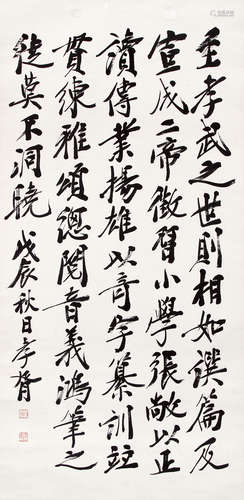 至孝武之世則相如譔篇及
宣成二帝徵習小學張敞以正
讀傳業揚雄以奇字纂訓竝
貫練雅頌總閱音義鴻筆之
徒莫不洞曉 戊辰秋日孝胥